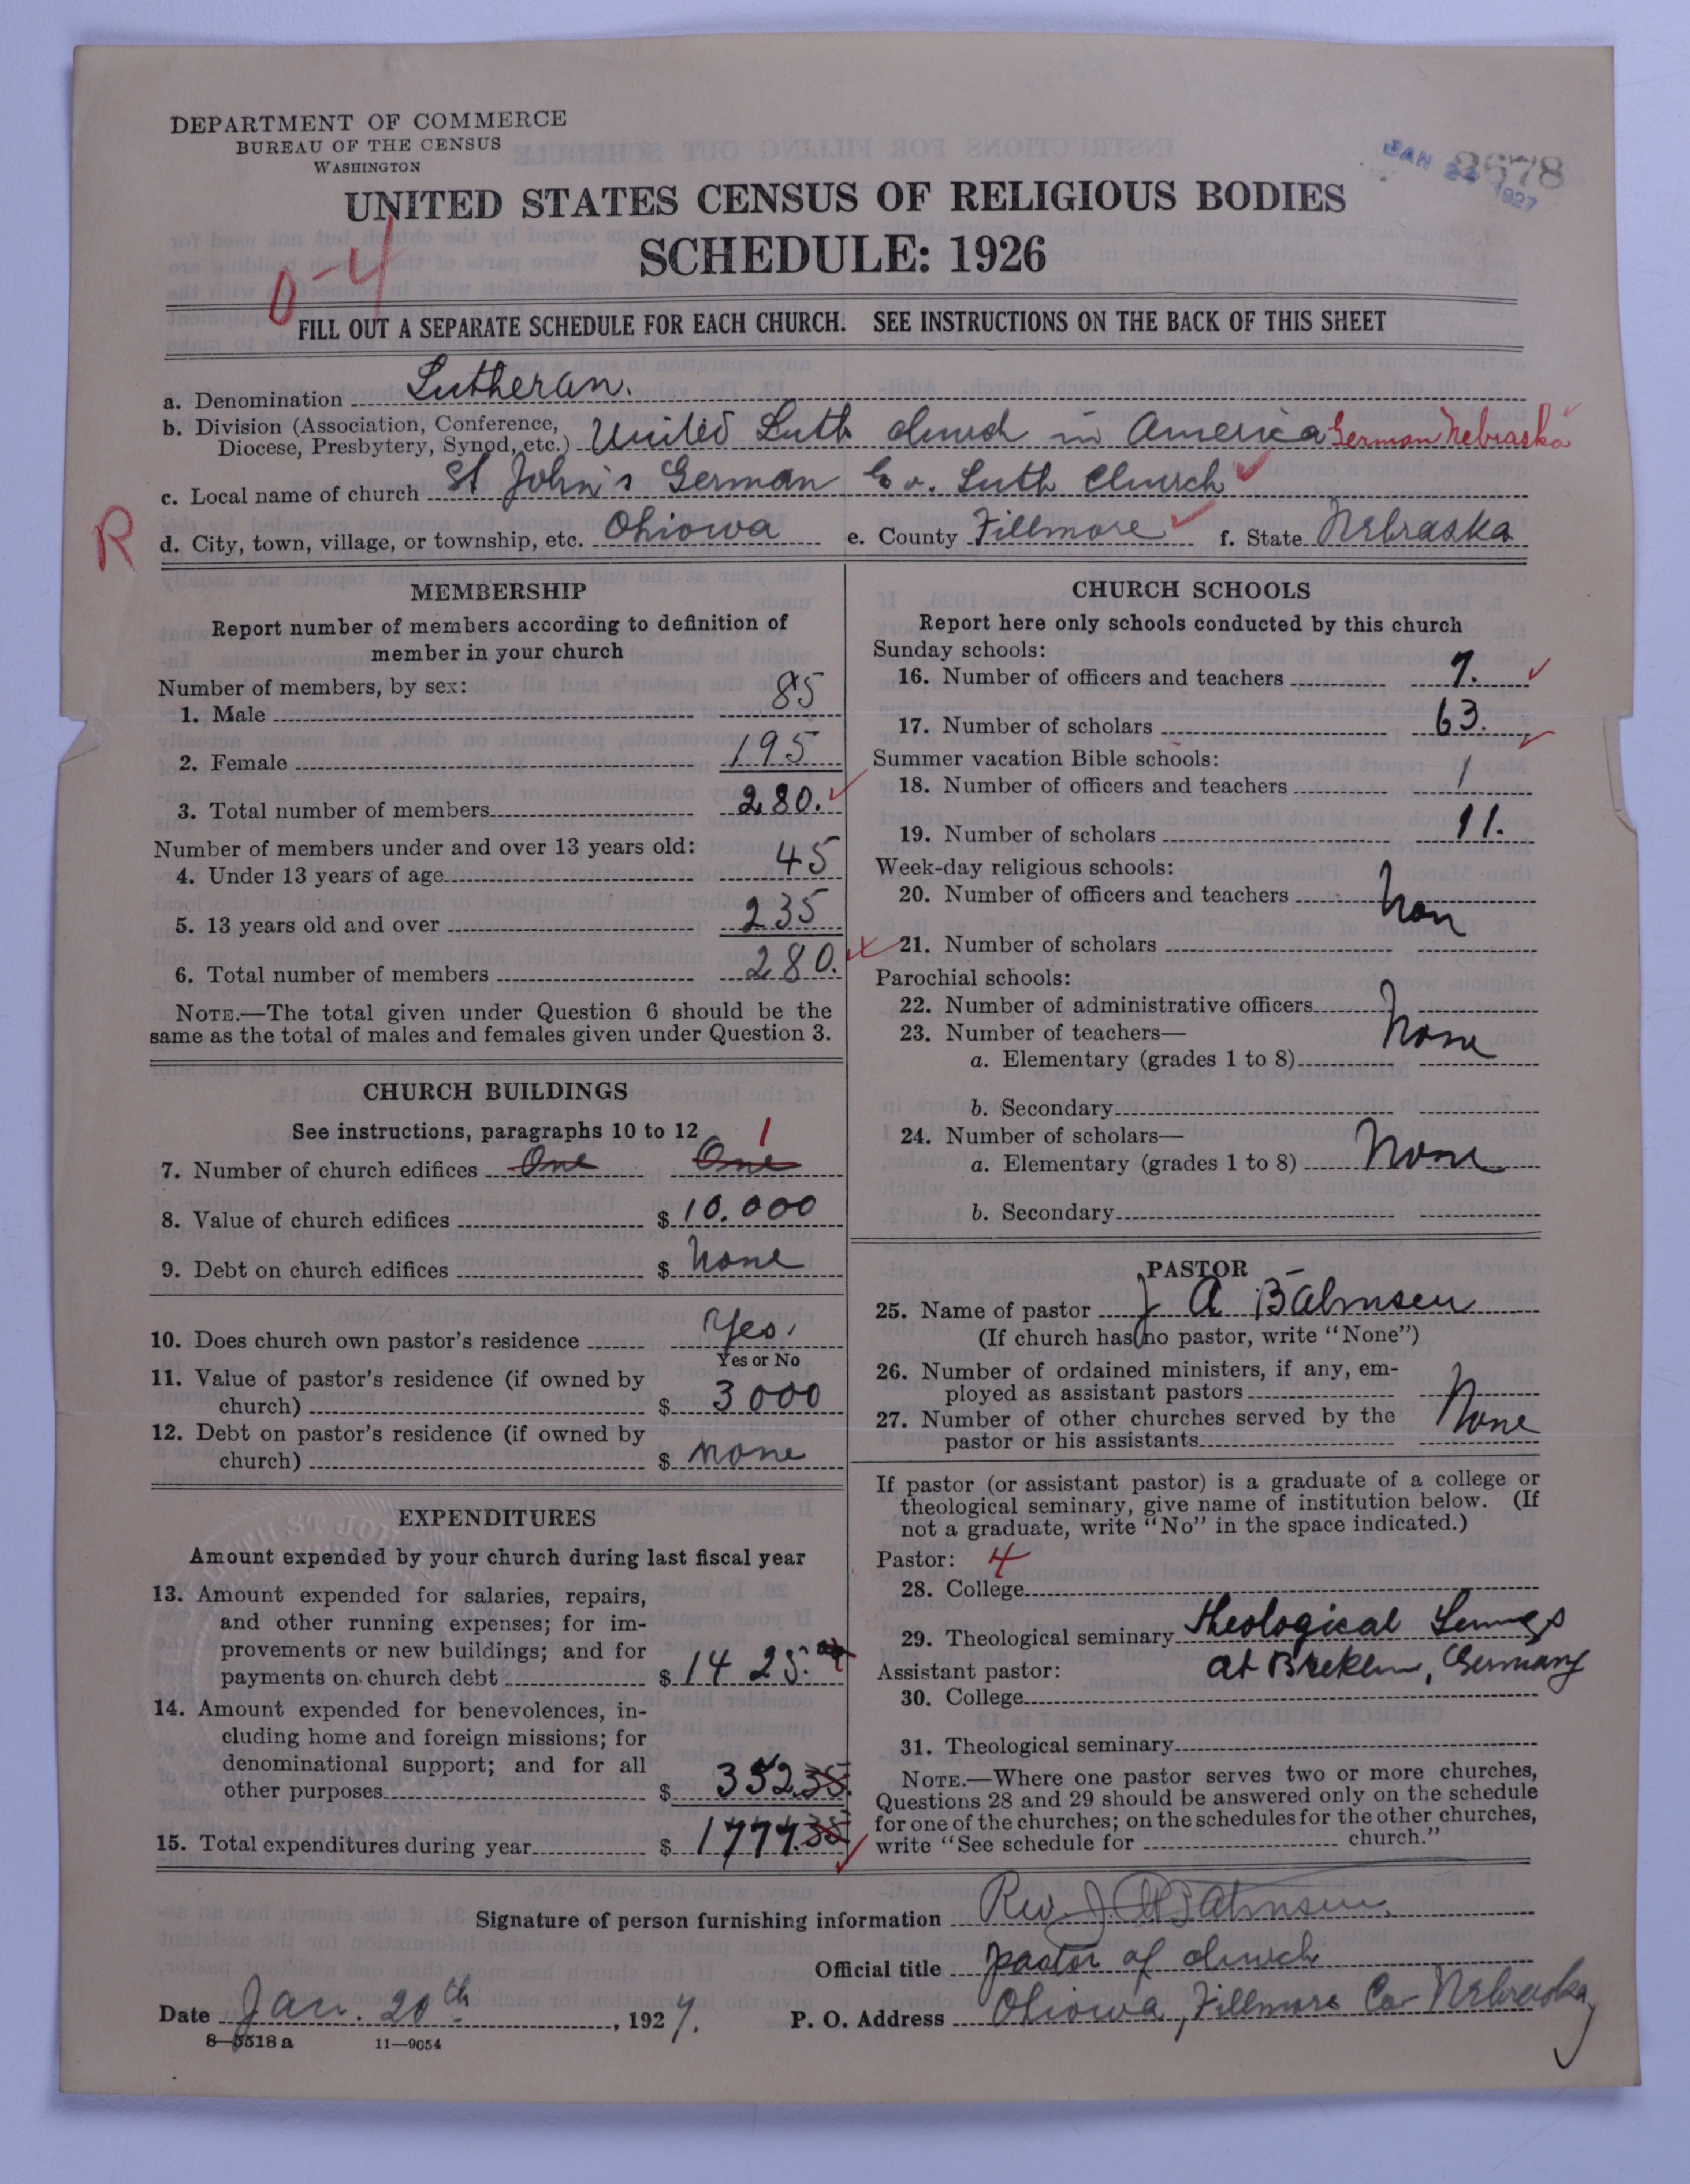 DEPARTMENT OF COMMERCE
BUREAU OF THE CENSUS
WASHINGTON
JAN 24 1927
2678
UNITED STATES CENSUS OF RELIGIOUS BODIES
SCHEDULE: 1926
0-4
FILL OUT A SEPARATE SCHEDULE FOR EACH CHURCH. SEE INSTRUCTIONS ON THE BACK OF THIS SHEET
a. Denomination Lutheran.
b. Division (Association, Conference,
Diocese, Presbytery, Synod, etc.) United Luth church in America German Nebraska
c. Local name of church St John's German Ev. Luth Church
R
d. City, town, village, or township, etc. Ohiowa e. County Fillmore f. State Nebraska
MEMBERSHIP
Report number of members according to definition of
member in your church
Number of members, by sex:
1. Male 85
2. Female 195
3. Total number of members 280.
Number of members under and over 13 years old:
4. Under 13 years of age 45
5. 13 years old and over 235
6. Total number of members 280.
NOTE.—The total given under Question 6 should be the
same as the total of males and females given under Question 3.
CHURCH BUILDINGS
See instructions, paragraphs 10 to 12
1
7. Number of church edifices One One
8. Value of church edifices $ 10.000
9. Debt on church edifices $ None
10. Does church own pastor's residence Yes.
Yes or No
11. Value of pastor's residence (if owned by
church) $ 3000
12. Debt on pastor's residence (if owned by
church) $ none
EXPENDITURES
Amount expended by your church during last fiscal year
13. Amount expended for salaries, repairs,
and other running expenses; for im-
provements or new buildings; and for
payments on church debt $ 1425.
14. Amount expended for benevolences, in-
cluding home and foreign missions; for
denominational support; and for all
other purposes $ 352.35
15. Total expenditures during year $ 1777.35
CHURCH SCHOOLS
Report here only schools conducted by this church
Sunday schools:
16. Number of officers and teachers 7.
17. Number of scholars 63.
Summer vacation Bible schools:
18. Number of officers and teachers 1
19. Number of scholars 11.
Week-day religious schools:
20. Number of officers and teachers Non
21. Number of scholars
Parochial schools:
22. Number of administrative officers
23. Number of teachers— None
a. Elementary (grades 1 to 8)
b. Secondary
24. Number of scholars—
a. Elementary (grades 1 to 8) None
b. Secondary
PASTOR
25. Name of pastor J A Bahnsen
(If church has no pastor, write "None")
26. Number of ordained ministers, if any, em-
ployed as assistant pastors
None
27. Number of other churches served by the
pastor or his assistants
If pastor (or assistant pastor) is a graduate of a college or
theological seminary, give name of institution below. (If
not a graduate, write "No" in the space indicated.)
Pastor: 4
28. College
29. Theological seminary Theological
Assistant pastor: at Breklum, Germany
30. College
31. Theological seminary
NOTE.—Where one pastor serves two or more churches,
Questions 28 and 29 should be answered only on the schedule
for one of the churches; on the schedules for the other churches,
write "See schedule for church."
Signature of person furnishing information Rev. J A Bahnsen.
Official title pastor of church
Date Jan. 20th, 1927. P. O. Address Ohiowa, Fillmore Co Nebraska
8—5518 a 11—9054